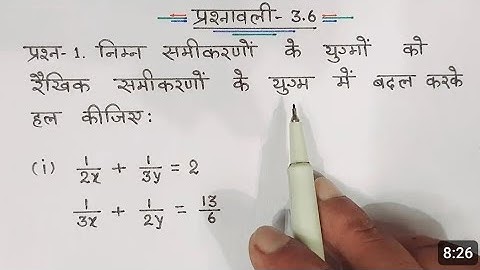 प्रश्नावली- 3.6
प्रश्न- 1. निम्न समीकरणों के युग्मों को
रैखिक समीकरणों के युग्म में बदल करके
हल कीजिए:
(i) 1/2x + 1/3y = 2
1/3x + 1/2y = 13/6
8:26